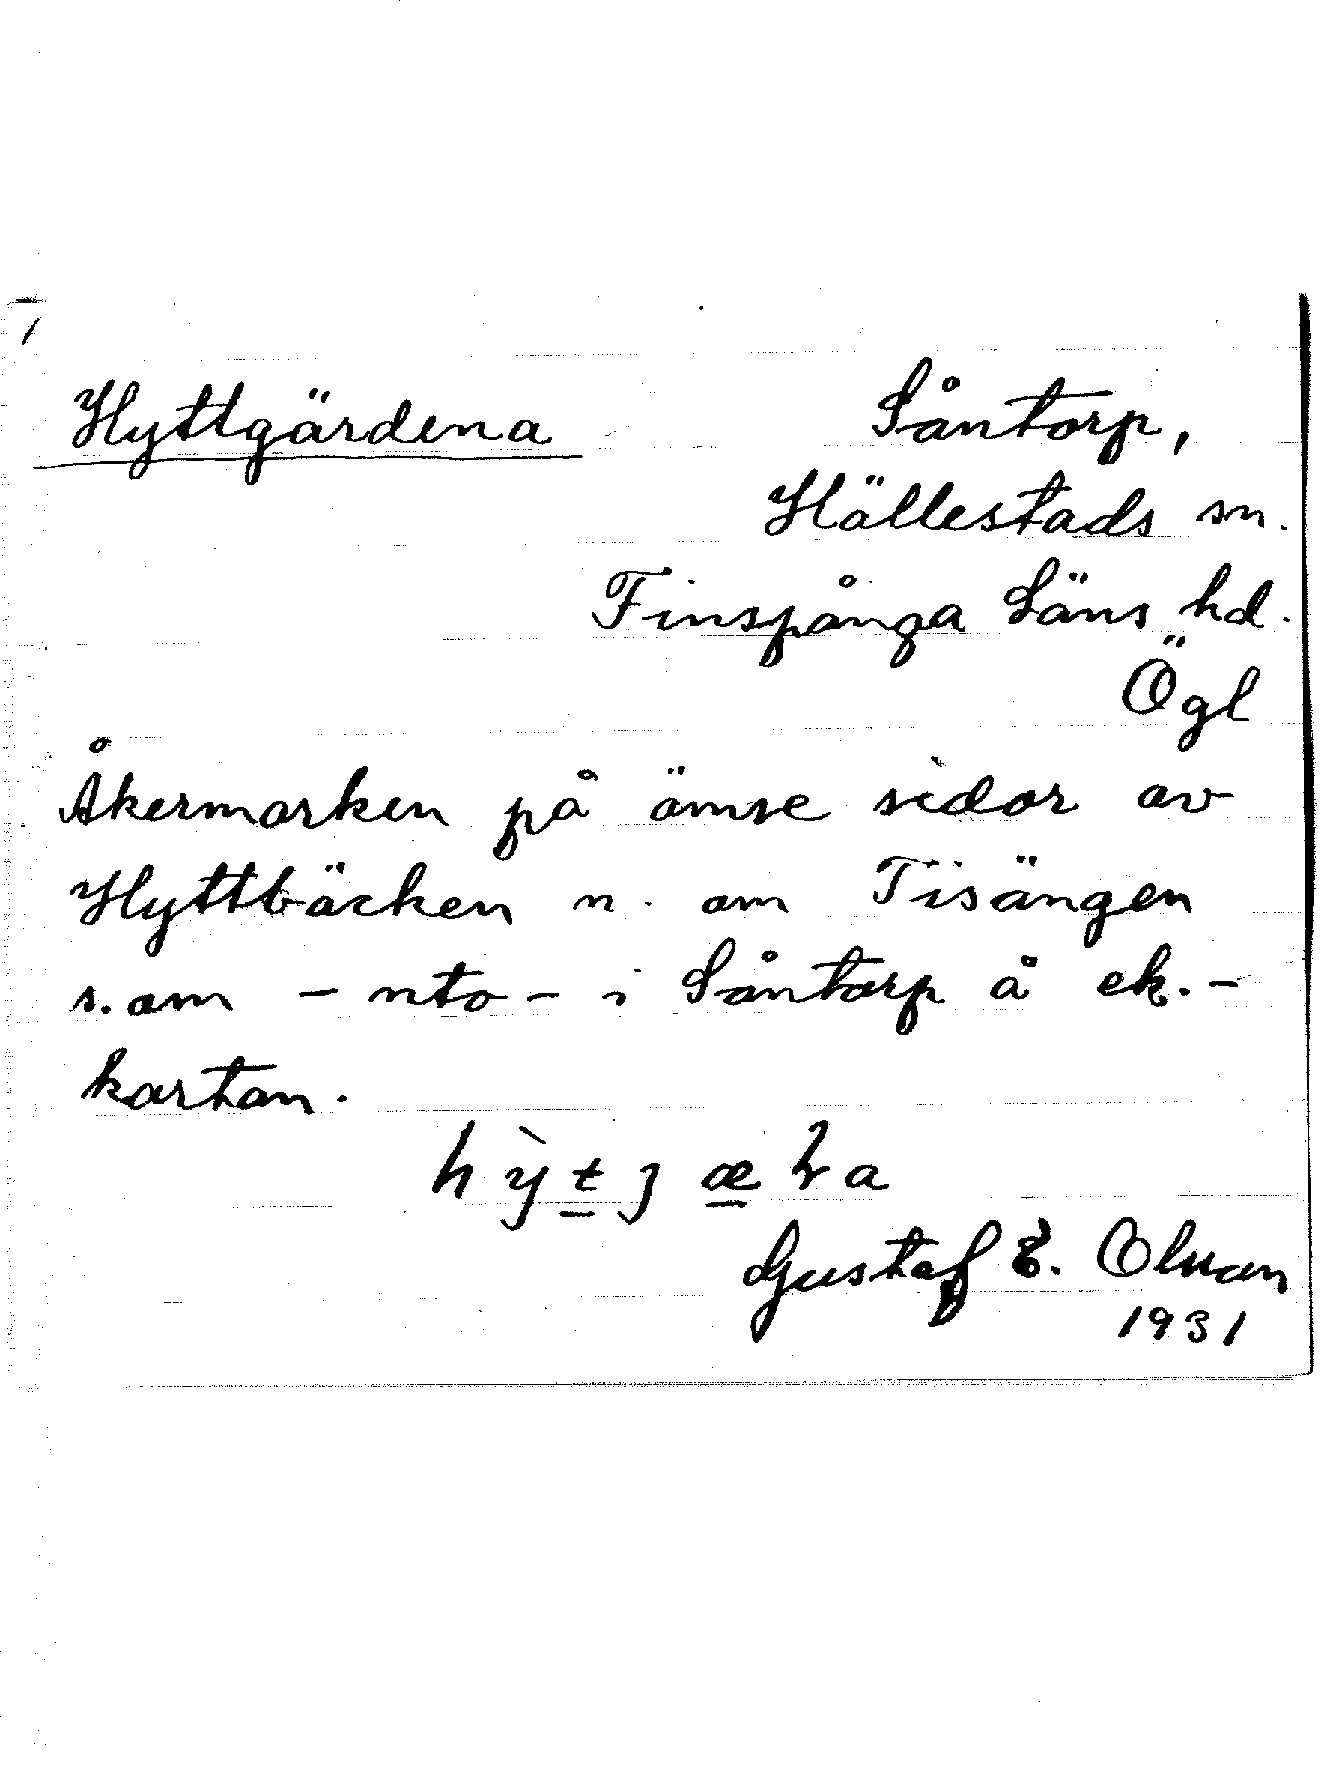 Hyttgärdena
Såntorp,
Hällestads sn.
Finspånga Läns hd.
Ögl
Åkermarken på ömse sidor av
Hyttbäcken n. om Tisängen
s. om - nto - i Såntorp å ek.-
kartan.
Gustaf E. Olsson
1931